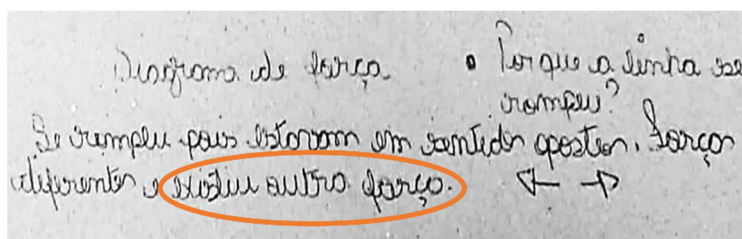 Diagrama de força
• Por que a linha se
rompeu?
Se rompeu pois estavam em sentidos opostos. Forças
diferentes e existiu outra força.